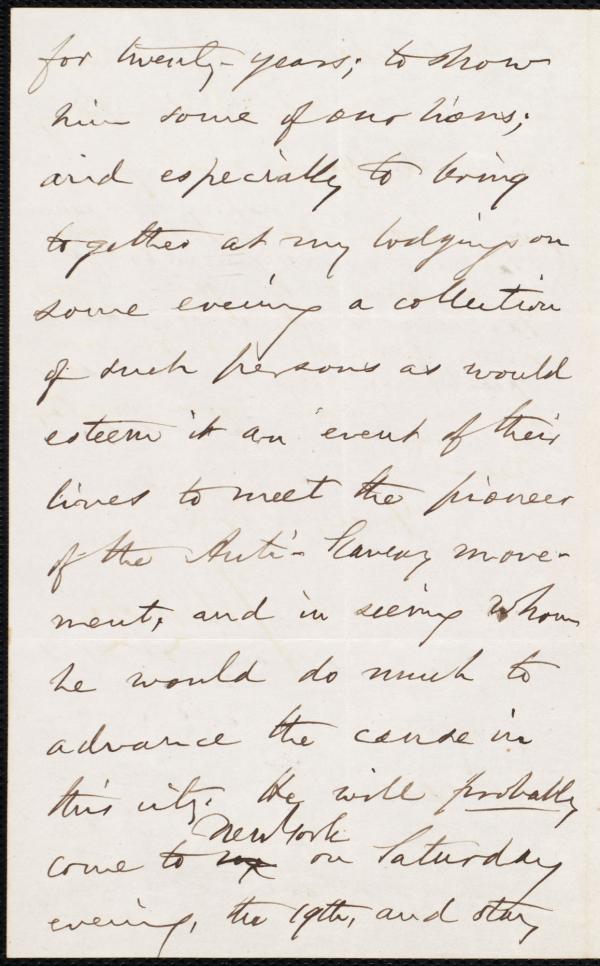 for twenty-years; to show
him some of our lions;
and especially to bring
together at my lodgings on
some evening a collection
of such persons as would
esteem it an event of their
lives to meet the pioneer
of the Anti-Slavery move-
ment, and in seeing whom
he would do much to
advance the cause in
this city. He will probably
New York
come to my on Saturday
evening, the 19th, and stay